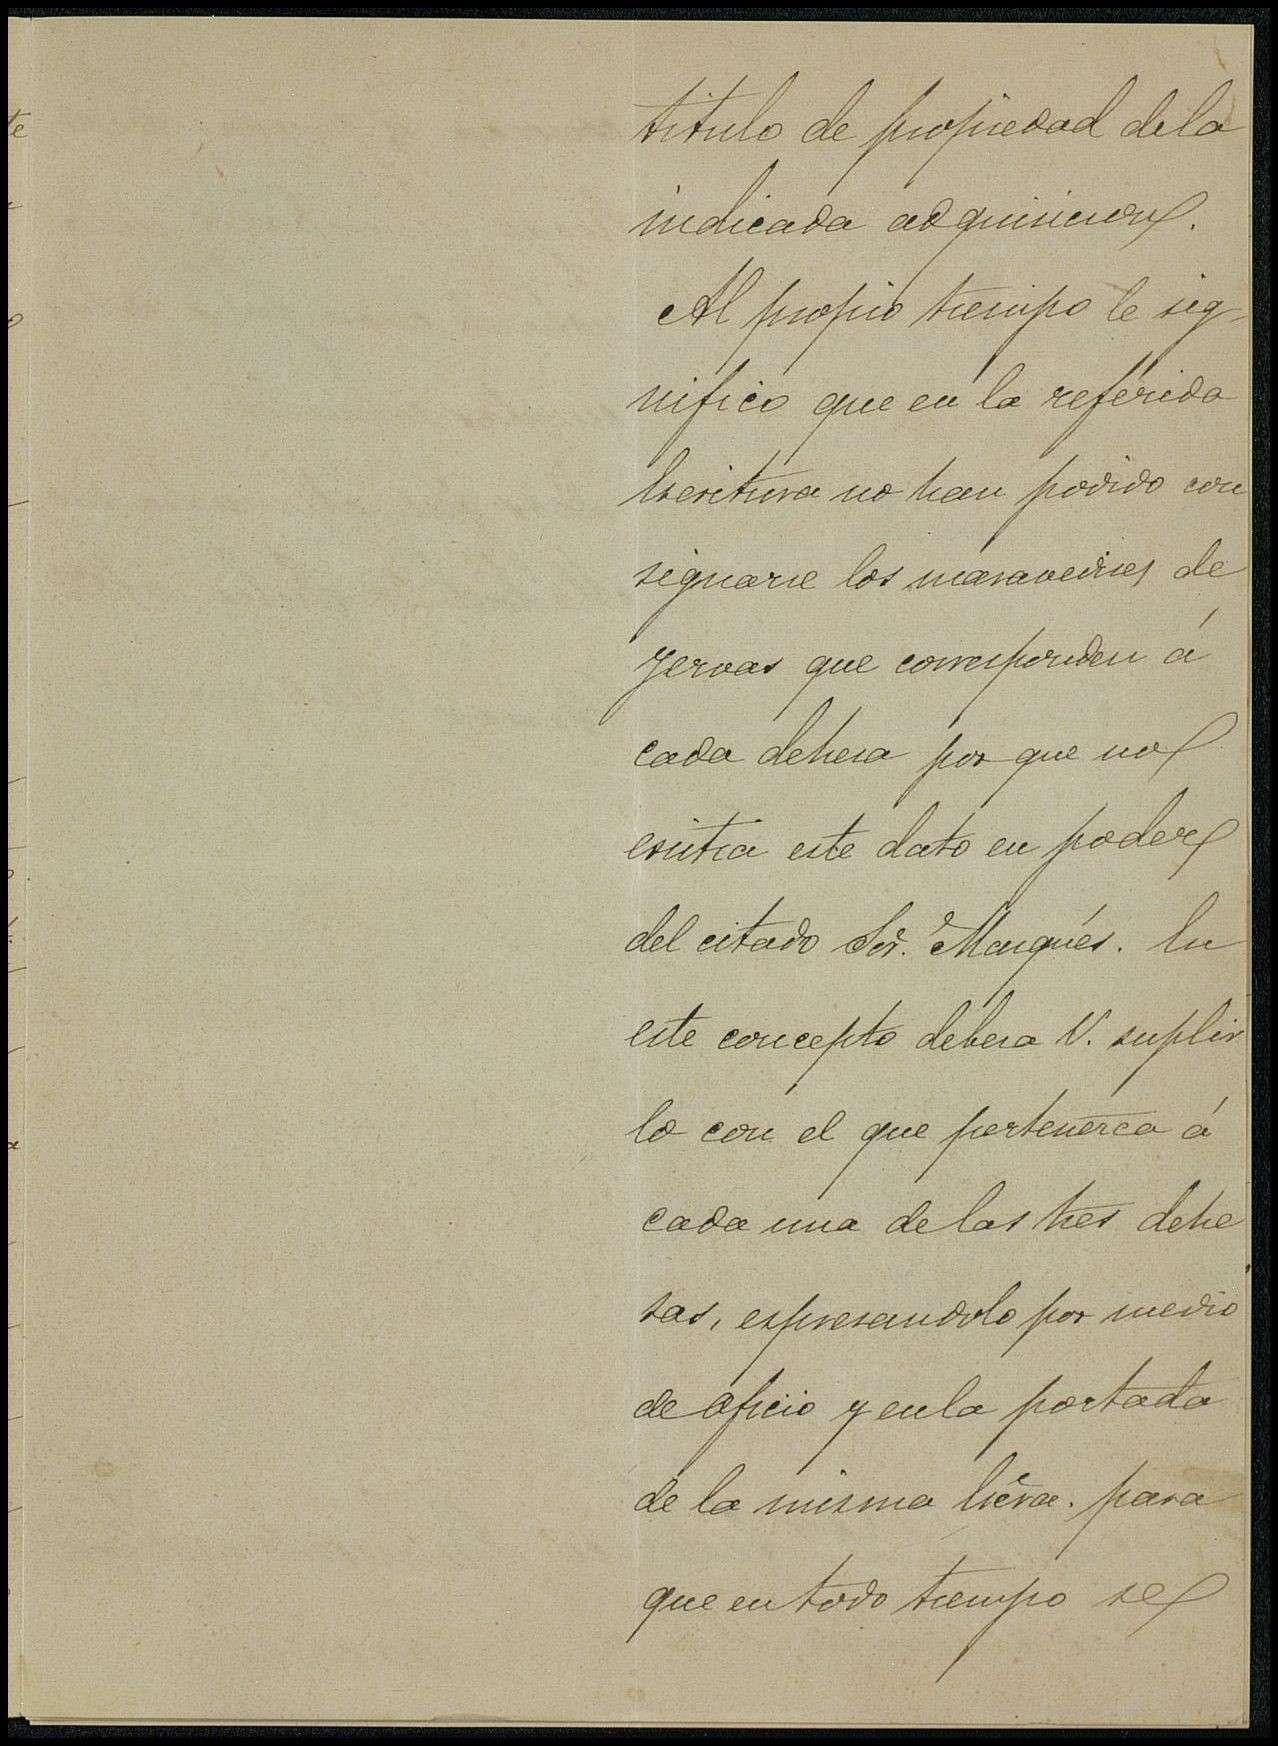 titulo de propiedad de la
indicada adquisicion.
Al propio tiempo le sig-
nifico que en la referida
Escritura no han podido con
signarse los maravedises de
yervas que corresponden á
cada dehesa por que no
existia este dato en poder
del citado Sor. Marqués. En
este concepto debera V. suplir
lo con el que pertenezca á
cada una de las tres dehe
sas, espresandolo por medio
de oficio y en la portada
de la misma Escra. para
que en todo tiempo se